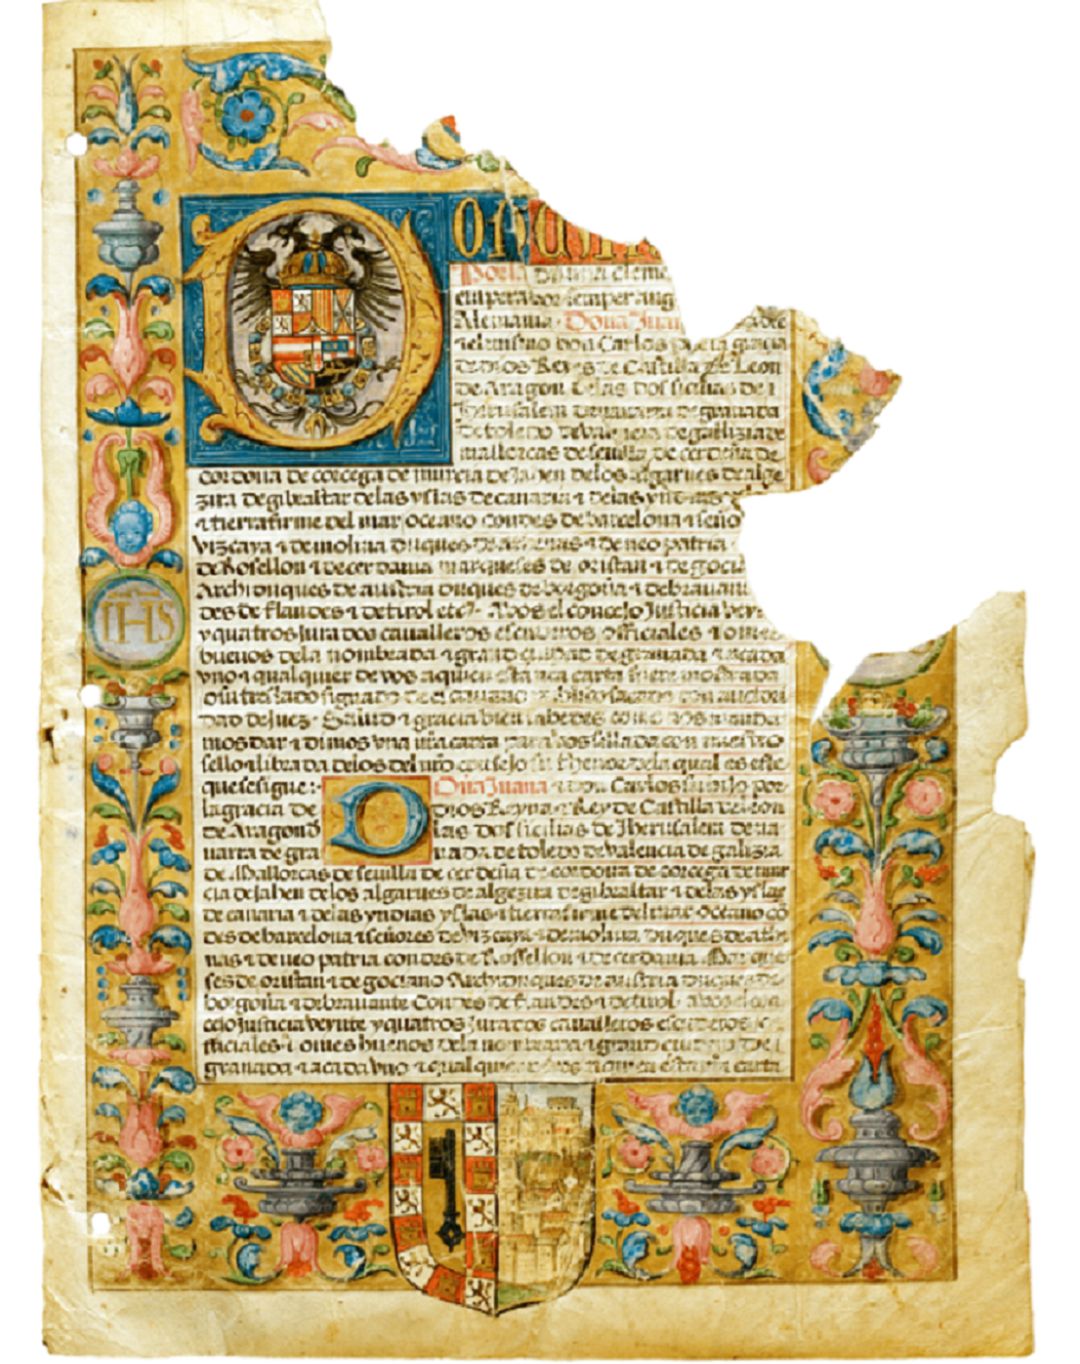 DON
Por la divina cleme
emperador semper aug
Alemania. Doña Jua
el mismo don Carlos por la gracia
de dios Reyes de Castilla de Leon
de Aragon de las dos sicilias de
Jherusalem de navarra de granada
de toledo de valencia de gallizia de
mallorcas de sevilla de cerdeña de
cordova de corcega de murcia de Jahen delos algarves de alge
zira de gibraltar delas yslas de canaria ⁊ delas
⁊ tierra firme del mar oceano condes de barcelona ⁊ seño
vizcaya ⁊ de molina duques de athenas ⁊ de neo patria
de Rosellon ⁊ de cerdania marqueses de oristan ⁊ de gocia
Archiduques de austria duques de borgoña ⁊ de bravan
des de flandes ⁊ de tirol etc. Avos el concejo Justicia vey
y quatros Jurados cavalleros escuderos officiales ⁊ omes
buenos dela nombrada ⁊ grand ciudad de granada ⁊ acada
vno ⁊ qualquier de vos aquien esta nra carta fuere mostrada
osu treslado signado de escrivano publico sacado con auctori
dad de Juez. Salud ⁊ gracia bien sabedes como nos manda
mos dar ⁊ dimos vna nra carta para vos sellada con nuestro
sello ⁊ librada delos del nro consejo su thenor dela qual es este
que se sigue:
Doña Juana ⁊ don Carlos su hijo por
la gracia de dios Reyna ⁊ Rey de Castilla de leon
de Aragon de las dos sicilias de Jherusalem de na
narra de granada de toledo de valencia de galizia
de Mallorcas de sevilla de cerdeña de cordova de corcega de mur
cia de Jahen delos algarves de algezira de gibraltar ⁊ delas yslas
de canaria ⁊ delas yndias yslas ⁊ tierra firme del mar oceano cõ
des de barcelona ⁊ señores de vizcaya ⁊ de molina duques de athe
nas ⁊ de neo patria condes de Rossellon ⁊ de cerdania. Marque
ses de oristan ⁊ de gociano Archiduques de austria duques de
borgoña ⁊ de bravante Condes de flandes ⁊ de tirol. Avos el con
cejo Justicia veynte y quatros Jurados cavalleros escuderos
fficiales ⁊ omes buenos dela nombrada ⁊ grand ciudad de
granada ⁊ acada vno ⁊ qualquier de vos aquien esta nra carta
IHS